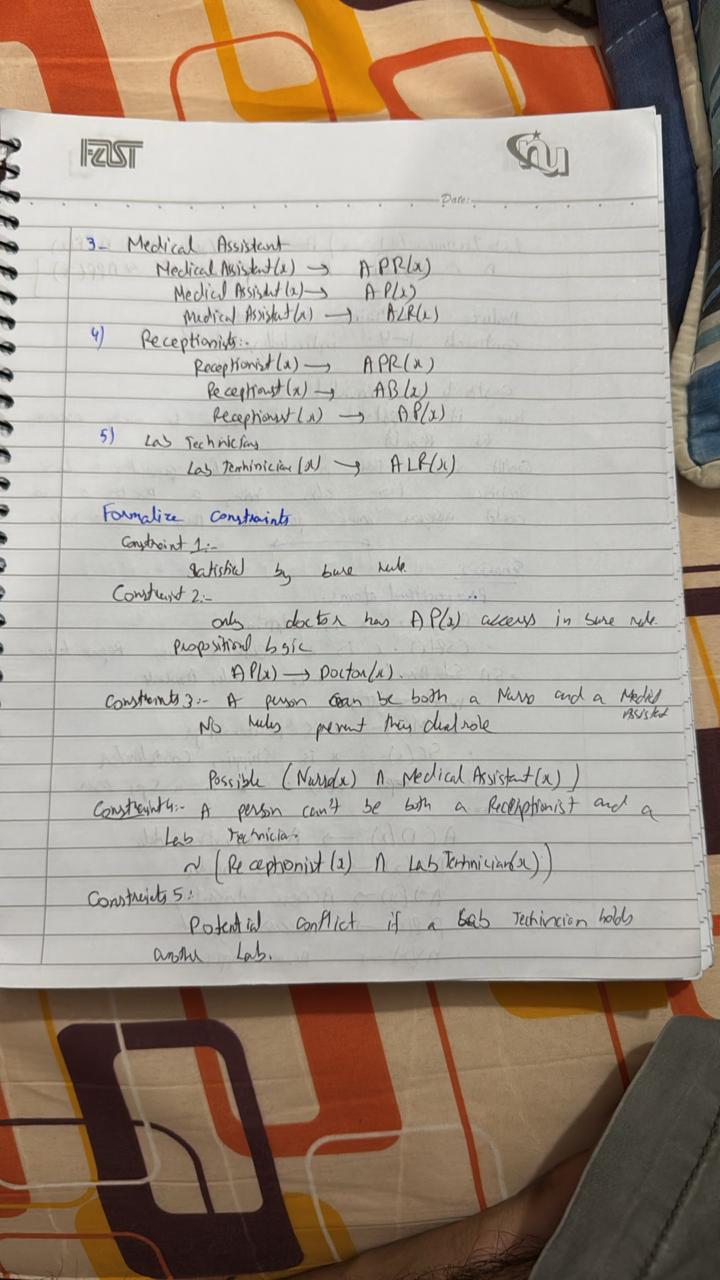 FAST
nu
Date:
3- Medical Assistant
Medical Assistant(x) → APR(x)
Medical Assistant(x) → AP(x)
Medical Assistant(x) → ALR(x)
4) Receptionists:-
Receptionist(x) → APR(x)
Receptionist(x) → AB(x)
Receptionist(x) → AP(x)
5) Lab Technicians
Lab Techinician(x) → ALR(x)
Formalize Constraints
Constraint 1:-
Satisfied by base rule
Constraint 2:-
only doctor has AP(x) access in base rule
Propositional logic
AP(x) → Doctor(x).
Constraints 3:- A person can be both a Nurse and a Medical
Assistant
No rules prevent this dual role
Possible (Nurse(x) ∩ Medical Assistant(x))
Constraint 4:- A person can't be both a Receptionist and a
Lab Technician.
~ (Receptionist(x) ∩ Lab Technician(x))
Constraints 5:
Potential conflict if a Lab Techincian holds
another Lab.